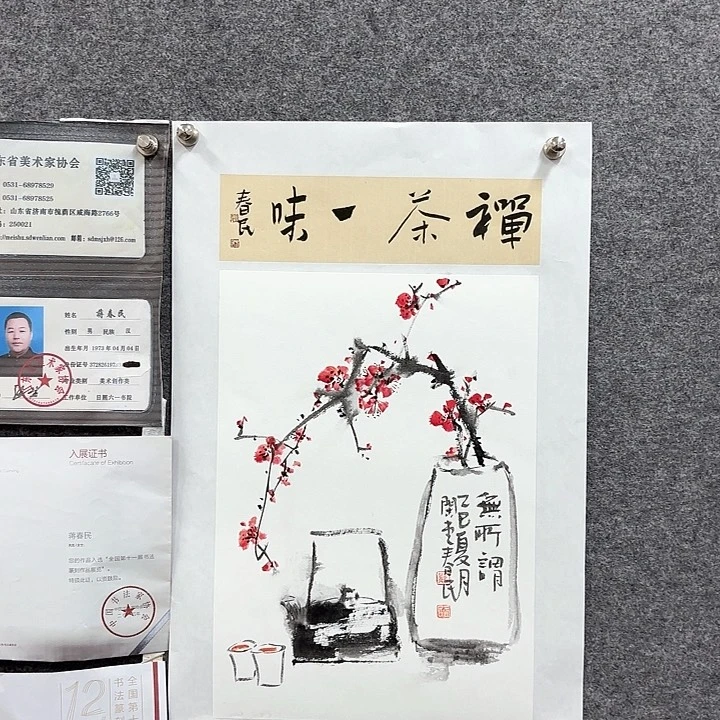 东省美术家协会
0531-68978529
0531-68978525
山东省济南市槐荫区威海路2766号
250021
//meishu.sdwenlian.com 邮箱:sdmsjxh@126.com
姓名 蒋春民
性别 男 民族 汉
出生年月 1973年04月04日
份证号 372826197
业类别 美术创作类
工作单位 日照六一书院
入展证书
Certificate of Exhibition
蒋春民
您的作品入选“全国第十一届书法
篆刻作品展览”,
特颁此证,以资鼓励。
中国书法家协会
12
全国第十
书法篆刻
禪茶一味
春民
無所謂
乙巳夏月
閑堂春民